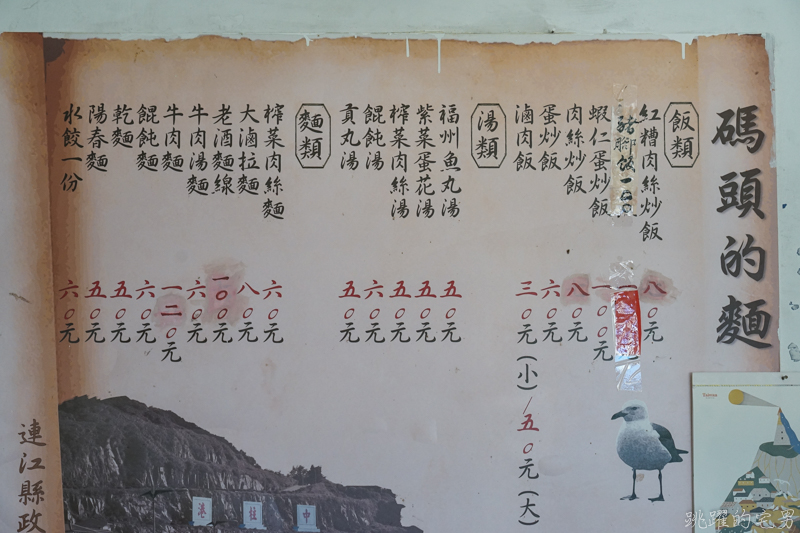 碼頭的麵
飯類
紅糟肉絲炒飯 八〇元
蝦仁蛋炒飯 一〇〇元
肉絲炒飯 八〇元
蛋炒飯 六〇元
滷肉飯 三〇元(小)/五〇元(大)
湯類
福州魚丸湯 五〇元
紫菜蛋花湯 五〇元
榨菜肉絲湯 五〇元
餛飩湯 六〇元
貢丸湯 五〇元
麵類
榨菜肉絲麵 六〇元
大滷拉麵 八〇元
老酒麵線 一〇〇元
牛肉湯麵 六〇元
牛肉麵 一二〇元
餛飩麵 六〇元
乾麵 五〇元
陽春麵 五〇元
水餃一份 六〇元
連江縣政
港柱中
跳躍的宅男